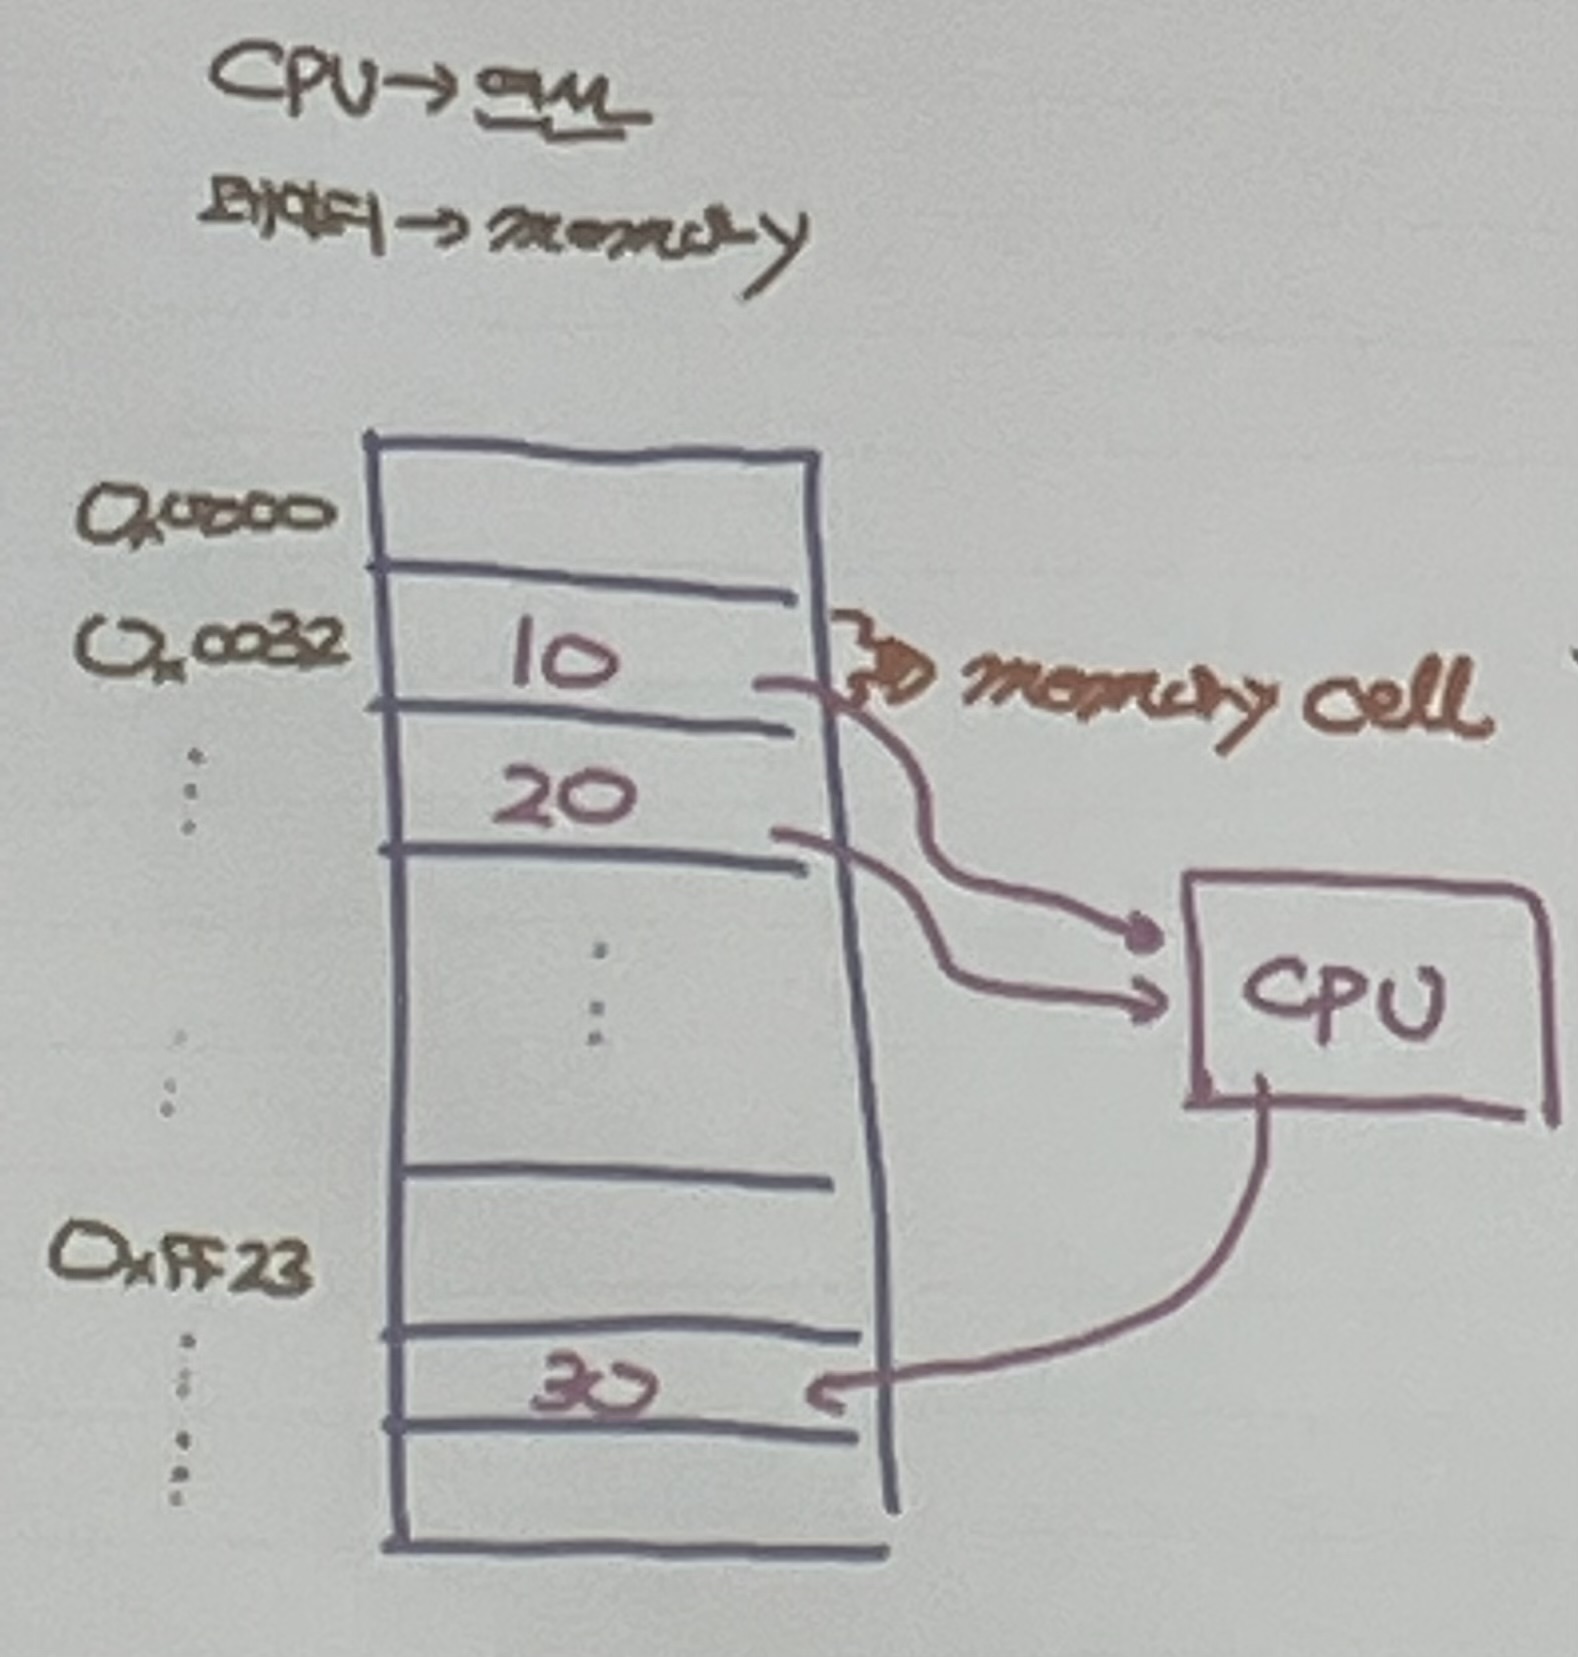 CPU→
데이터→memory
0x0000
0x0032
10
memory cell
20
CPU
0xFF23
30